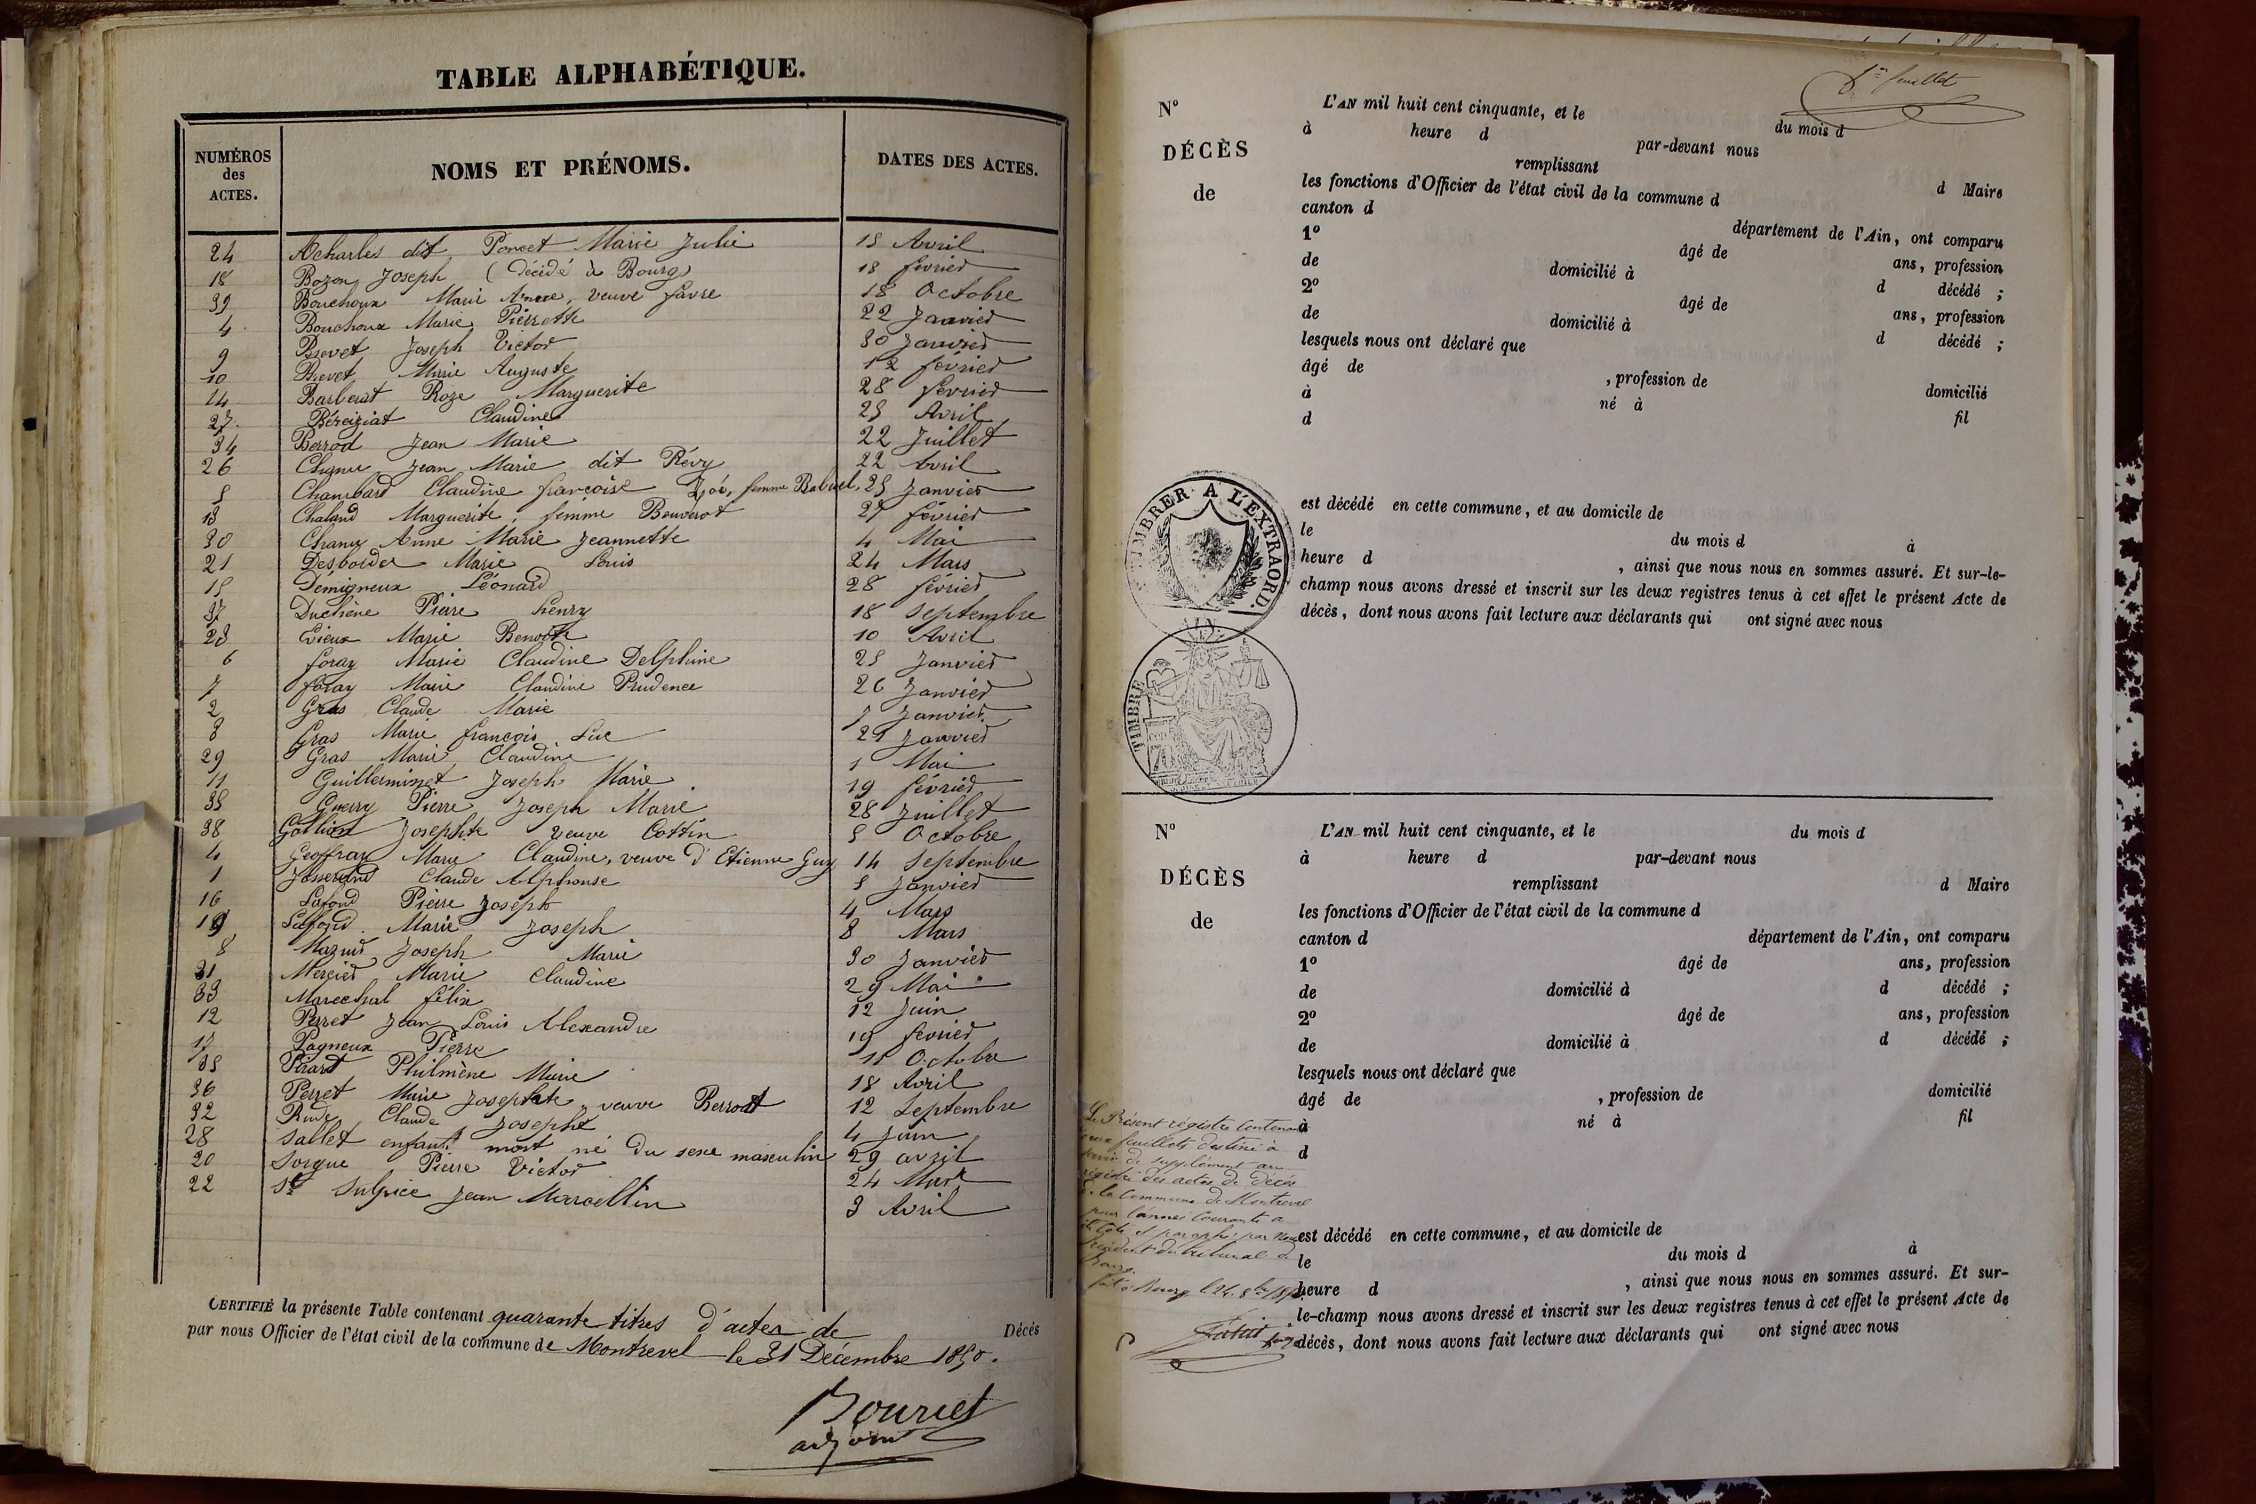 TABLE ALPHABÉTIQUE.
NUMÉROS des ACTES. NOMS ET PRÉNOMS. DATES DES ACTES.
24 Acharles dit Poncet Marie Julie 15 Avril
18 Bozon Joseph (Décédé à Bourg) 18 février
39 Bouchoux Marie Anne, veuve favre 18 Octobre
4 Bouchoux Marie Pierrette 22 Janvier
9 Brevet Joseph Victor 30 Janvier
10 Brevet Marie Auguste 12 février
14 Barberat Roze Marguerite 28 février
27 Béreiziat Claudine 25 Avril
34 Berrod Jean Marie 22 Juillet
26 Jean Marie dit Révy 22 Avril
5 Chambard Claudine françoise Zoé, femme Babuel, 25 Janvier
13 Chaland Marguerite, femme Bouverot 27 février
30 Chanu Anne Marie Jeannette 4 Mai
21 Desbordes Marie Louis 24 Mars
15 Démigneux Léonard 28 février
37 Duchêne Pierre henry 18 Septembre
23 Marie Benoîte 10 Avril
6 foray Marie Claudine Delphine 25 Janvier
7 foray Marie Claudine Prudence 26 Janvier
2 Gras Claude Marie 7 Janvier
8 Gras Marie françois Luc 29 Janvier
29 Gras Marie Claudine 1 Mai
11 Guilleminet Joseph Marie 19 février
35 Guerry Pierre Joseph Marie 28 Juillet
38 Gallion Josephte veuve Cottin 5 Octobre
4 Geoffray Marie Claudine, veuve d'Etienne Guy 14 Septembre
1 Josserand Claude Alphonse 5 Janvier
16 Lafond Pierre Joseph 4 Mars
19 Lafond Marie Joseph 8 Mars
8 Mazuir Joseph Marie 30 Janvier
31 Mercier Marie Claudine 29 Mai
33 Marechal félix 12 Juin
12 Perret Jean Louis Alexandre 19 février
17 Pagneux Pierre 11 Octobre
35 Pirard Philmène Marie 18 Avril
36 Perret Marie Josephte, veuve Berrod 12 Septembre
32 Rude Claude Josephe 4 Juin
28 Sallet enfant mort né du sexe masculin 29 avril
20 Sorgue Pierre Victor 24 Mars
22 St Sulpice Jean Marcellin 3 Avril
CERTIFIÉ la présente Table contenant quarante titres d'actes de Décés
par nous Officier de l'état civil de la commune de Montrevel le 31 Décembre 1850.
Bouriet
adjoint
feuillet
N° L'AN mil huit cent cinquante, et le du mois d
à heure d par-devant nous
DÉCÈS remplissant d Maire
de les fonctions d'Officier de l'état civil de la commune d
canton d département de l'Ain, ont comparu
1° âgé de ans, profession
de domicilié à d décédé ;
2° âgé de ans, profession
de domicilié à d décédé ;
lesquels nous ont déclaré que
âgé de , profession de domicilié
à né à fil
d
TIMBRER A L'EXTRAORD.
est décédé en cette commune, et au domicile de
le du mois d à
heure d , ainsi que nous nous en sommes assuré. Et sur-le-
champ nous avons dressé et inscrit sur les deux registres tenus à cet effet le présent Acte de
décès, dont nous avons fait lecture aux déclarants qui ont signé avec nous
TIMBRE
N° L'AN mil huit cent cinquante, et le du mois d
à heure d par-devant nous
DÉCÈS remplissant d Maire
de les fonctions d'Officier de l'état civil de la commune d
canton d département de l'Ain, ont comparu
1° âgé de ans, profession
de domicilié à d décédé ;
2° âgé de ans, profession
de domicilié à d décédé ;
lesquels nous ont déclaré que
âgé de , profession de domicilié
à né à fil
d
Le Présent registre Contenant
feuillets destiné à
de supplément au
registre des actes de décès
de la Commune de Montrevel
pour l'année Courante a
été Coté et paraphé par Nous
président du tribunal de
Bourg.
fait à Bourg
est décédé en cette commune, et au domicile de
le du mois d à
heure d , ainsi que nous nous en sommes assuré. Et sur-
le-champ nous avons dressé et inscrit sur les deux registres tenus à cet effet le présent Acte de
décès, dont nous avons fait lecture aux déclarants qui ont signé avec nous